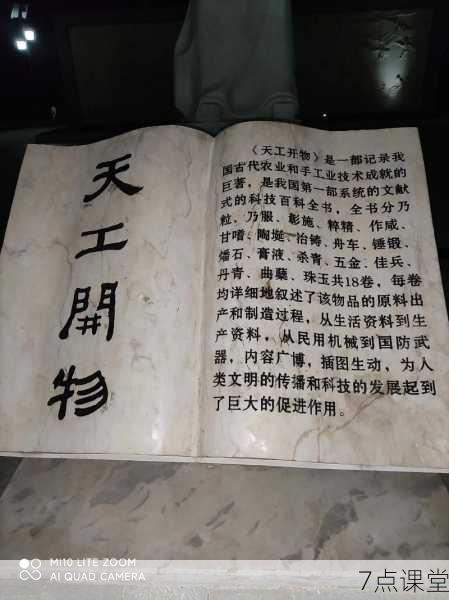 天工開物
《天工开物》是一部记录我
国古代农业和手工业技术成就的
巨著，是我国第一部系统的文献
式的科技百科全书，全书分乃
粒、乃服、彰施、粹精、作咸、
甘嗜、陶埏、冶铸、舟车、锤锻、
燔石、膏液、杀青、五金、佳兵、
丹青、曲蘖、珠玉共18卷，每卷
均详细地叙述了该物品的原料出
产和制造过程，从生活资料到生
产资料，从民用机械到国防武
器，内容广博，插图生动，为人
类文明的传播和科技的发展起到
了巨大的促进作用。
MI10 LITE ZOOM
AI QUAD CAMERA
7点课堂